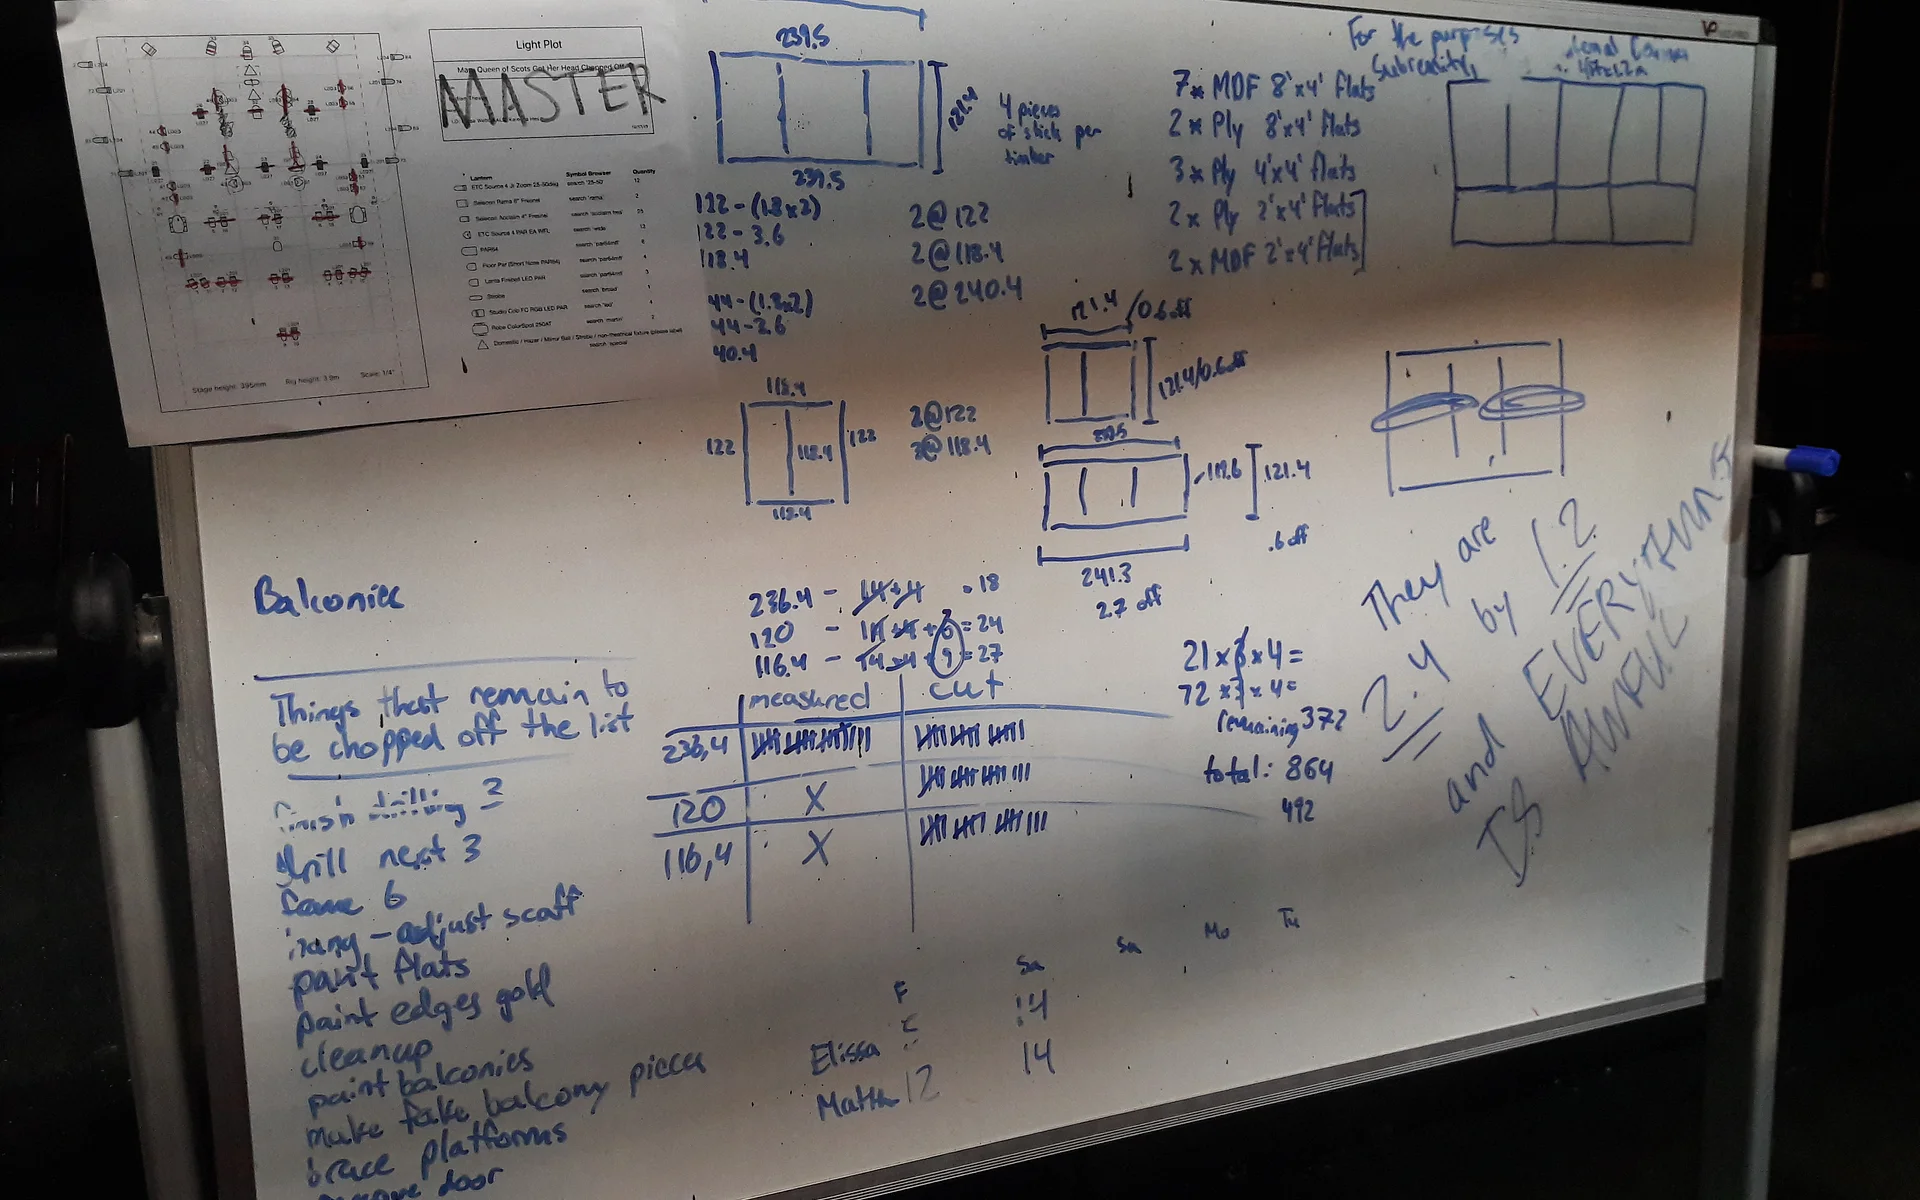 Light Plot
Mary Queen of Scots Got Her Head Chopped Off
MASTER
Lantern Symbol Browser Quantity
ETC Source 4 Jr Zoom 25-50deg search '25-50' 12
Selecon Rama 6" Fresnel search 'rama' 2
Selecon Acclaim 4" Fresnel
ETC Source 4 PAR EA WFL search 'wide' 12
PAR64 search 'par64mfl' 6
Floor Par (Short Nose PAR64) search 'par64mfl' 4
search 'par64mfl' 3
Strobe search 'broad' 1
Studio Colo FC RGB LED PAR search 'led' 4
Robe ColorSpot 250AT search 'martin' 2
Domestic / Hazer / Mirror Ball / Strobe / non-theatrical fixture (please label)
search 'special'
Stage height: 395mm Rig height: 3.9m Scale: 1/4"
239.5
121.4
239.5
4 pieces
of stick per
timber
122-(1.8x2)
122-3.6
118.4
44-(1.8x2)
44-3.6
40.4
2@122
2@118.4
2@240.4
7x MDF 8'x4' flats
2x Ply 8'x4' flats
3x Ply 4'x4' flats
2x Ply 2'x4' flats
2x MDF 2'x4' flats
For the purposes
121.4/0.6 off
121.4/0.6 off
118.4
122
118.4
122
118.4
2@122
3@118.4
239.5
118.6
121.4
.6 off
241.3
2.7 off
They are
2.4 by 1.2
and EVERYTHING
IS AWFUL
Balconies
236.4 - 14+4 = 18
120 - 14+4+6=24
116.4 - 14+4+9=27
measured cut
236,4
120 X
116,4 X
21x3x4=
72x3x4=
remaining 372
total: 864
492
Things that remain to
be chopped off the list
finish drilling 3
drill next 3
hang - adjust scaff
paint flats
paint edges gold
cleanup
paint balconies
make fake balcony pieces
brace platforms
door
F Sa Su Mo Tu
Elissa 14
12 14